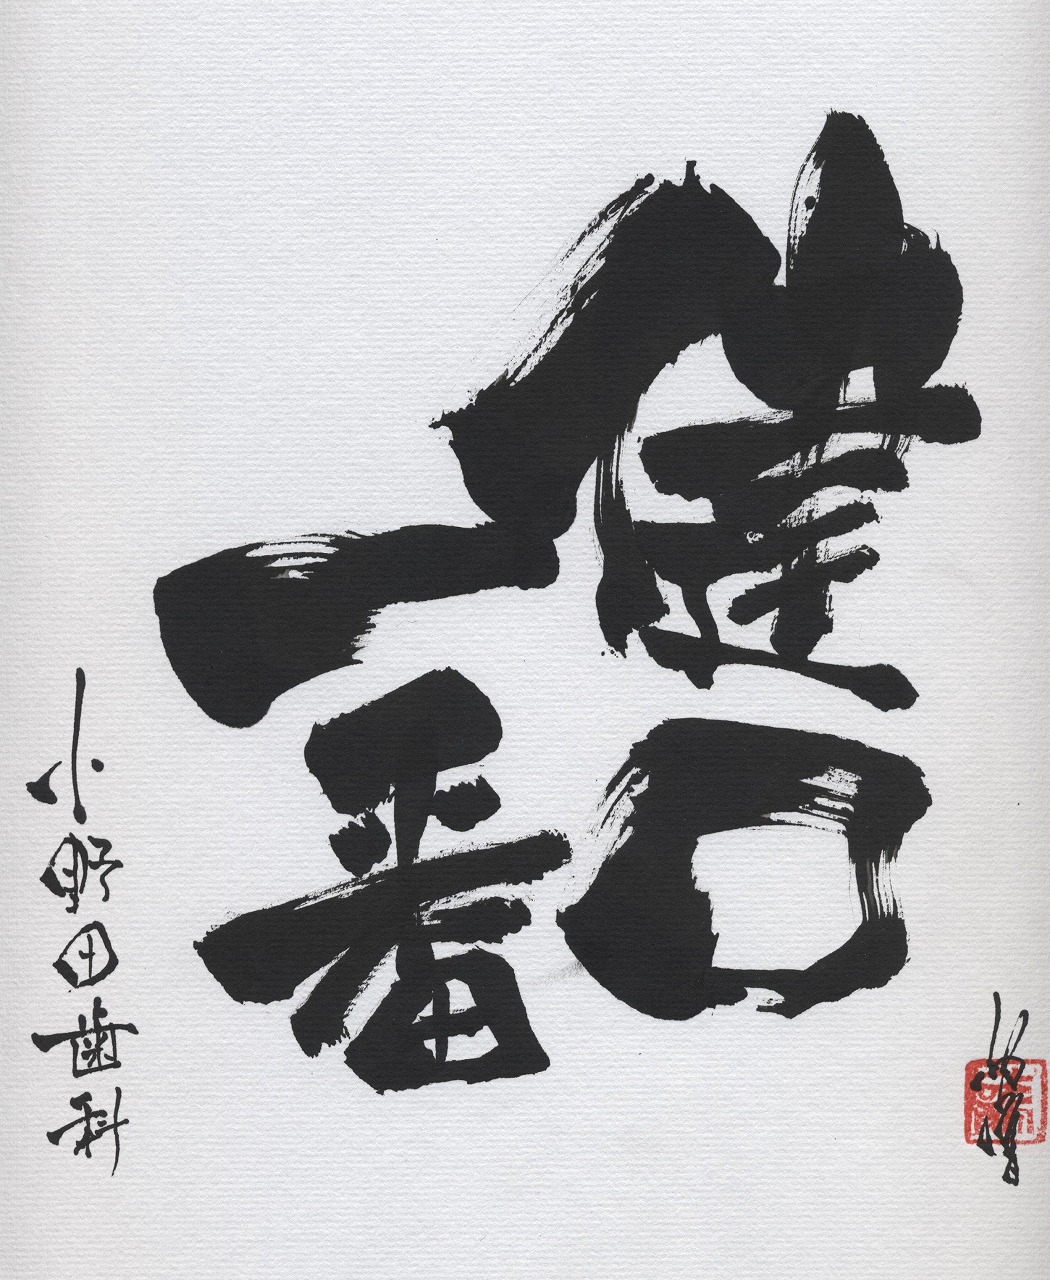 健口
一番
小野田歯科